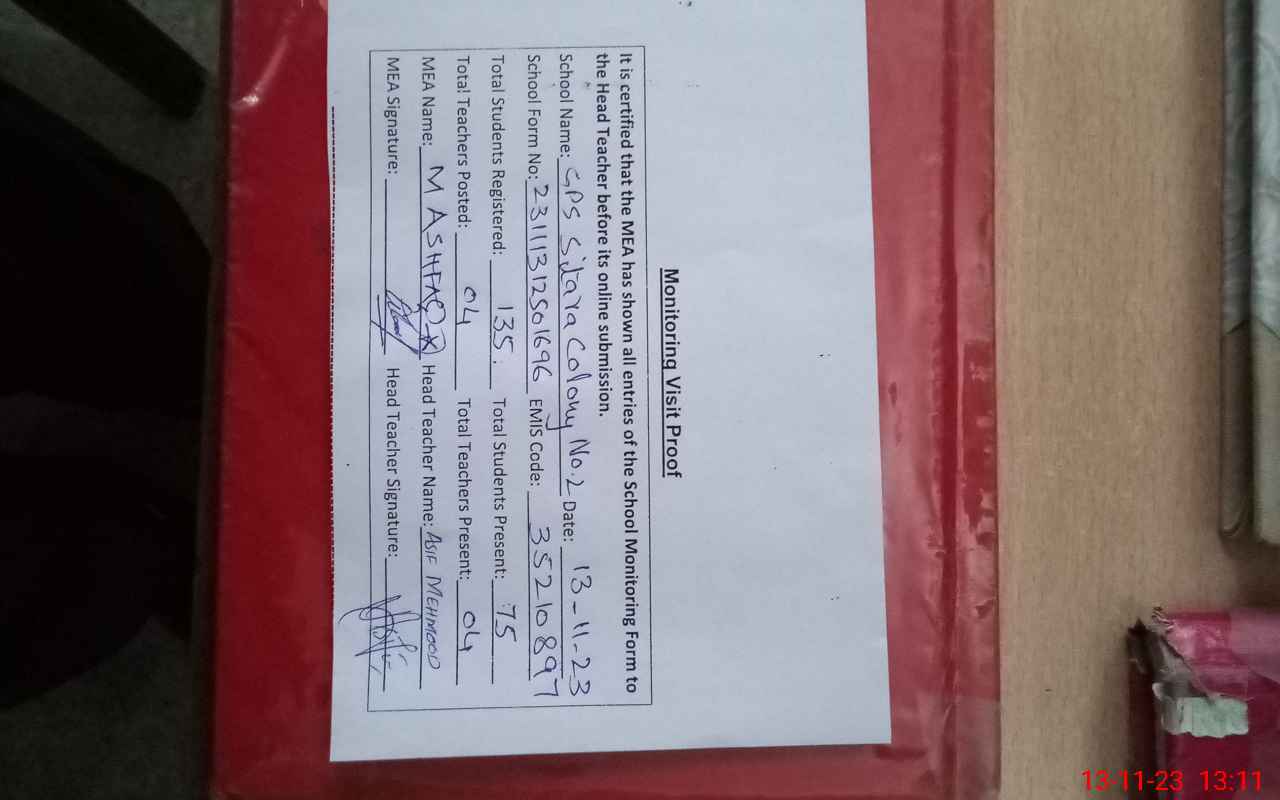 Monitoring Visit Proof
It is certified that the MEA has shown all entries of the School Monitoring Form to
the Head Teacher before its online submission.
School Name: GPS Sitara Colony No.2 Date: 13-11-23
School Form No: 23111312501696 EMIS Code: 35210897
Total Students Registered: 135. Total Students Present: 75
Total Teachers Posted: 04 Total Teachers Present: 04
MEA Name: M ASHFAQ Head Teacher Name: ASIF MEHMOOD
MEA Signature: Head Teacher Signature:
13-11-23 13:11